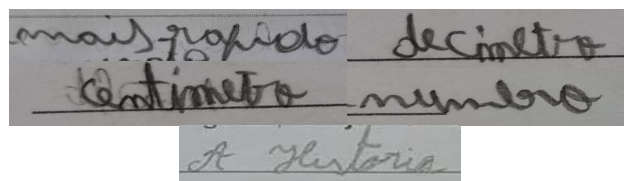 mais rapido decimetro
centimetro numero
A Historia